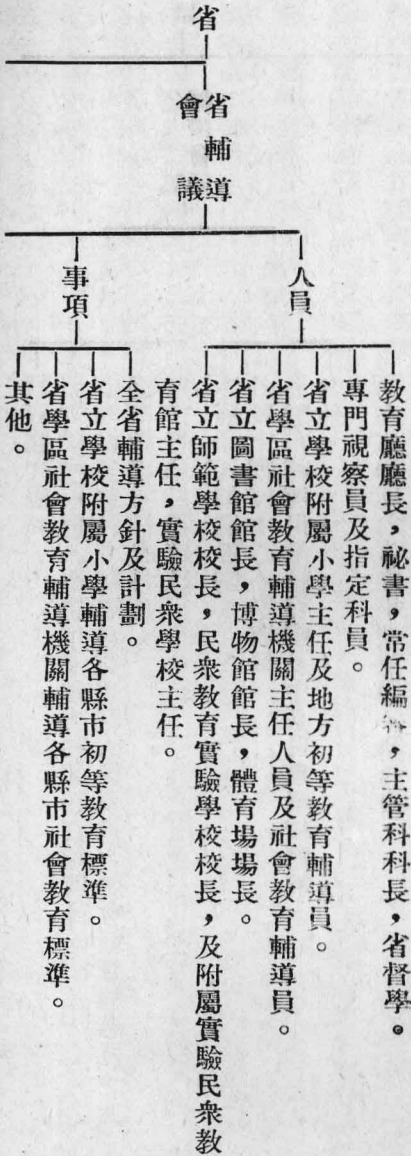 省
省輔導
會議
人員
教育廳廳長，祕書，常任編，主管科科長，省督學。
專門視察員及指定科員。
省立學校附屬小學主任及地方初等教育輔導員。
省學區社會教育輔導機關主任人員及社會教育輔導員。
省立圖書館館長，博物館館長，體育場場長。
省立師範學校校長，民衆教育實驗學校校長，及附屬實驗民衆教
育館主任，實驗民衆學校主任。
事項
全省輔導方針及計劃。
省立學校附屬小學輔導各縣市初等教育標準。
省學區社會教育輔導機關輔導各縣市社會教育標準。
其他。